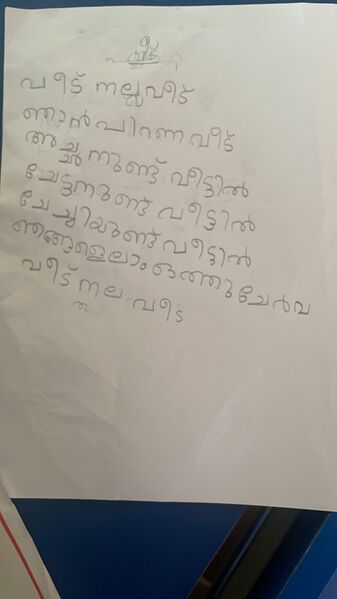 വീട്
വീട് നല്ല വീട്
ഞാൻ പിറന്ന വീട്
അച്ചനുണ്ട് വീട്ടിൽ
ചേട്ടനുണ്ട് വീട്ടിൽ
ചേച്ചിയുണ്ട് വീട്ടിൽ
ഞങ്ങളെലാം ഒത്തുചേർവ
വീട് നല വീട